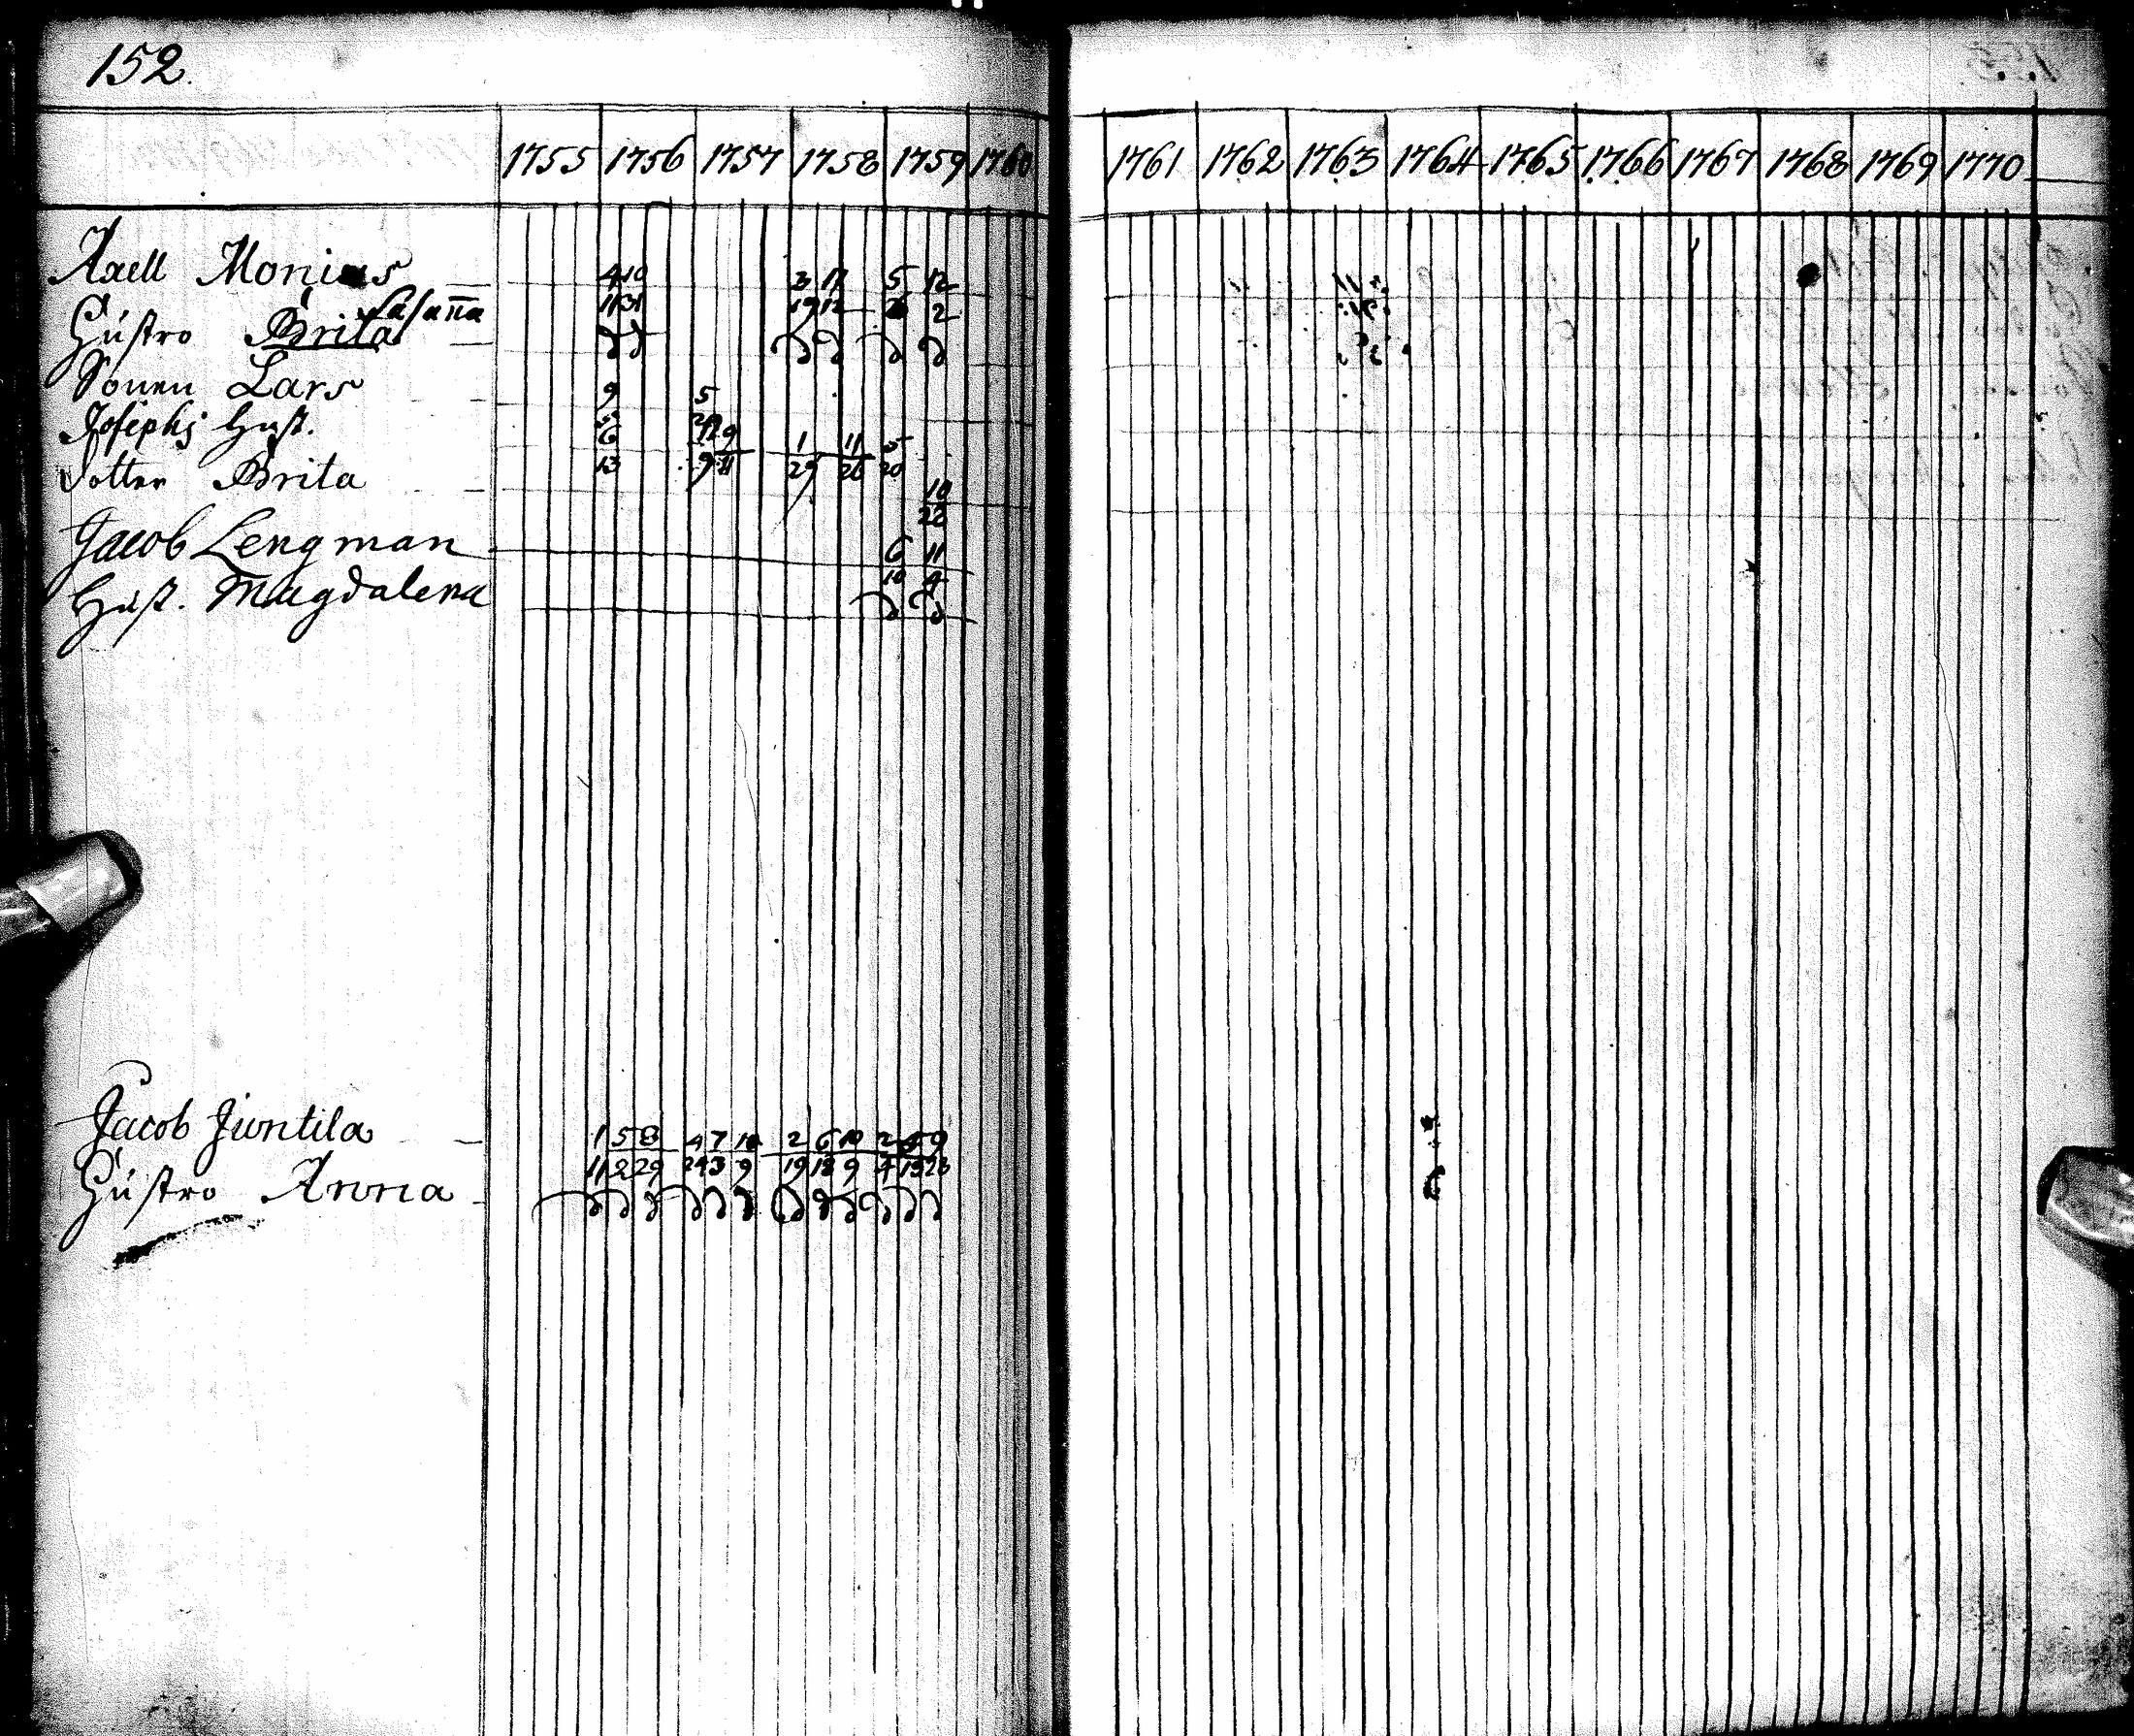 152.
1755 1756 1757 1758 1759 1760 1761 1762 1763 1764 1765 1766 1767 1768 1769 1770
Axell Monius 4 10 3 17 5 12
11 31 19 12 2
Hústro Brita
Sonen Lars 9 5
Josephs Hust. 6 9 1 11 5
Dotter Brita 13 9 11 29 26 20
10
22
Jacob Lengman 6 11
10 4
Hust. Magdalena
Jacob Juntila 1 5 8 4 7 10 2 6 10 2 9
11 2 29 24 3 9 19 18 9 4 15 23
Hústro Anna